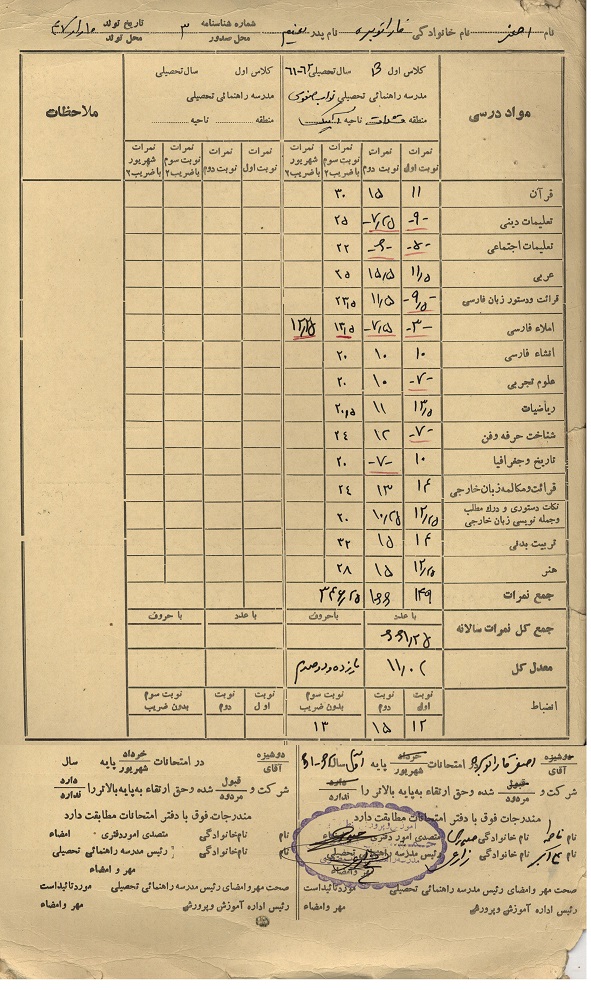 نام اصغر نام خانوادگی نام پدر شماره شناسنامه ۳ تاریخ تولد
محل صدور محل تولد
مواد درسی
کلاس اول سال تحصیلی ۶۲-۶۱
مدرسه راهنمائی تحصیلی نواب صفوی
منطقه ناحیه
نمرات نوبت اول نمرات نوبت دوم نمرات نوبت سوم باضریب ۲ نمرات شهریور باضریب ۲
کلاس اول سال تحصیلی
مدرسه راهنمائی تحصیلی
منطقه ناحیه
نمرات نوبت اول نمرات نوبت دوم نمرات نوبت سوم باضریب ۲ نمرات شهریور باضریب ۲
ملاحظات
قرآن ۱۱ ۱۵ ۳۰
تعلیمات دینی -۹- -۷/۲۵- ۲۵
تعلیمات اجتماعی -۵- -۶- ۲۲
عربی ۱۱/۵ ۱۵/۵ ۲۵
قرائت ودستور زبان فارسی -۹/۵- ۱۱/۵ ۲۳/۵
املاء فارسی -۳- -۷/۵- ۱۳/۵ ۱۲/۲۵
انشاء فارسی ۱۰ ۱۰ ۲۰
علوم تجربی -۷- ۱۰ ۲۰
ریاضیات ۱۳/۵ ۱۱ ۲۰/۵
شناخت حرفه وفن -۷- ۱۲ ۲۴
تاریخ وجغرافیا ۱۰ -۷- ۲۰
قرائت ومکالمه زبان خارجی ۱۴ ۱۳ ۲۴
نکات دستوری و درك مطلب وجمله نویسی زبان خارجی ۱۲/۲۵ ۱۰/۲۵ ۲۰
تربیت بدنی ۱۴ ۱۵ ۳۲
هنر ۱۲/۲۵ ۱۵ ۲۸
جمع نمرات ۱۴۹ ۱۶۶ ۳۴۶/۲۵
با عدد باحروف با عدد با حروف
جمع کل نمرات سالانه ۶۶۱/۲۵
معدل کل ۱۱/۰۲ یازده و دو صدم
نوبت اول نوبت دوم نوبت سوم بدون ضریب نوبت اول نوبت دوم نوبت سوم بدون ضریب
انضباط ۱۲ ۱۵ ۱۳
دوشیزه آقای اصغر امتحانات خرداد شهریور پایه اول سال
شرکت و قبول مردود شده وحق ارتقاء به پایه بالاتر را دارد ندارد
مندرجات فوق با دفتر امتحانات مطابقت دارد
نام نام خانوادگی متصدی امور دفتری امضاء
نام نام خانوادگی زارع رئیس مدرسه راهنمائی تحصیلی
مهر و امضاء
صحت مهر وامضای رئیس مدرسه راهنمائی تحصیلی موردتائیداست
رئیس اداره آموزش وپرورش مهر وامضاء
دوشیزه آقای در امتحانات خرداد شهریور پایه سال
شرکت و قبول مردود شده وحق ارتقاء به پایه بالاتر را دارد ندارد
مندرجات فوق با دفتر امتحانات مطابقت دارد
نام نام خانوادگی متصدی امور دفتری امضاء
نام نام خانوادگی رئیس مدرسه راهنمائی تحصیلی
مهر و امضاء
صحت مهر وامضای رئیس مدرسه راهنمائی تحصیلی موردتائیداست
رئیس اداره آموزش وپرورش مهر وامضاء